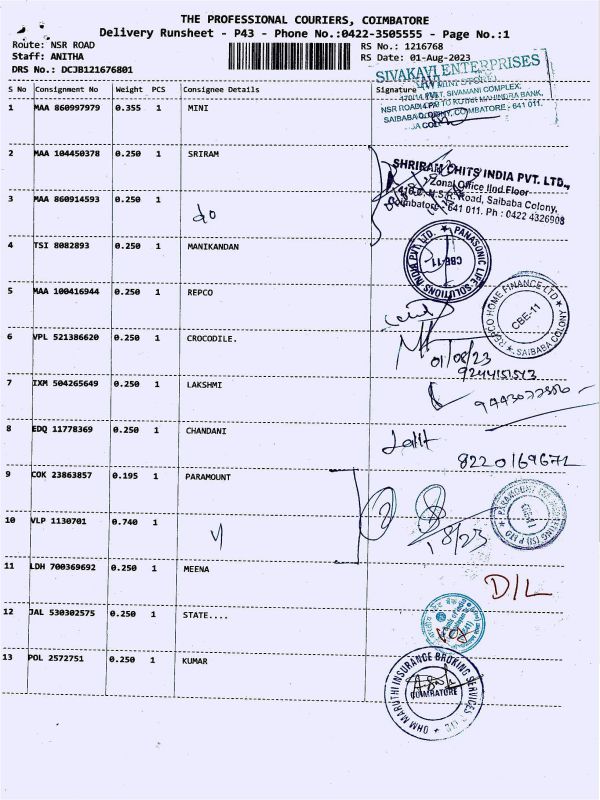 THE PROFESSIONAL COURIERS, COIMBATORE
Delivery Runsheet - P43 - Phone No.:0422-3505555 - Page No.:1
Route: NSR ROAD
RS No.: 1216768
Staff: ANITHA
RS Date: 01-Aug-2023
DRS No.: DCJB121676801
S No Consignment No Weight PCS Consignee Details Signature
SIVAKAVI ENTERPRISES
MINI STORE
SIVAMANI COMPLEX,
NSR ROAD KOTAK MAHINDRA BANK,
SAIBABA COLONY, COIMBATORE - 641 011.
1 MAA 860997979 0.355 1 MINI
2 MAA 104450378 0.250 1 SRIRAM
SHRIRAM CHITS INDIA PVT. LTD.,
Zonal Office IInd Floor
N.S.R. Road, Saibaba Colony,
Coimbatore - 641 011. Ph : 0422 4326908
3 MAA 860914593 0.250 1 do
4 TSI 8082893 0.250 1 MANIKANDAN
PANASONIC LIFE SOLUTIONS INDIA PVT. LTD.
CBE-11
5 MAA 100416944 0.250 1 REPCO
REPCO HOME FINANCE LTD
CBE-11
SAIBABA COLONY
6 VPL 521386620 0.250 1 CROCODILE.
01/08/23
9244151513
7 IXM 504265649 0.250 1 LAKSHMI
8 EDQ 11778369 0.250 1 CHANDANI
Lalit
8220169672
9 COK 23863857 0.195 1 PARAMOUNT
10 VLP 1130701 0.740 1
1/8/23
11 LDH 700369692 0.250 1 MEENA
D/L
12 JAL 530302575 0.250 1 STATE....
13 POL 2572751 0.250 1 KUMAR
OHM MARUTHI INSURANCE BROKING SERVICES
COIMBATORE